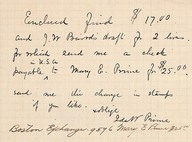 Enclosed find $17.00
and J.W. Bairds draft for 2 lines.
for which send me a check
in U.S.A
payable to Mary E. Prime for $25.00.
and me the change in stamps
if you like. oblige
Ida W Prime
Boston Exchange. 9576 Mary E Prime $25.00